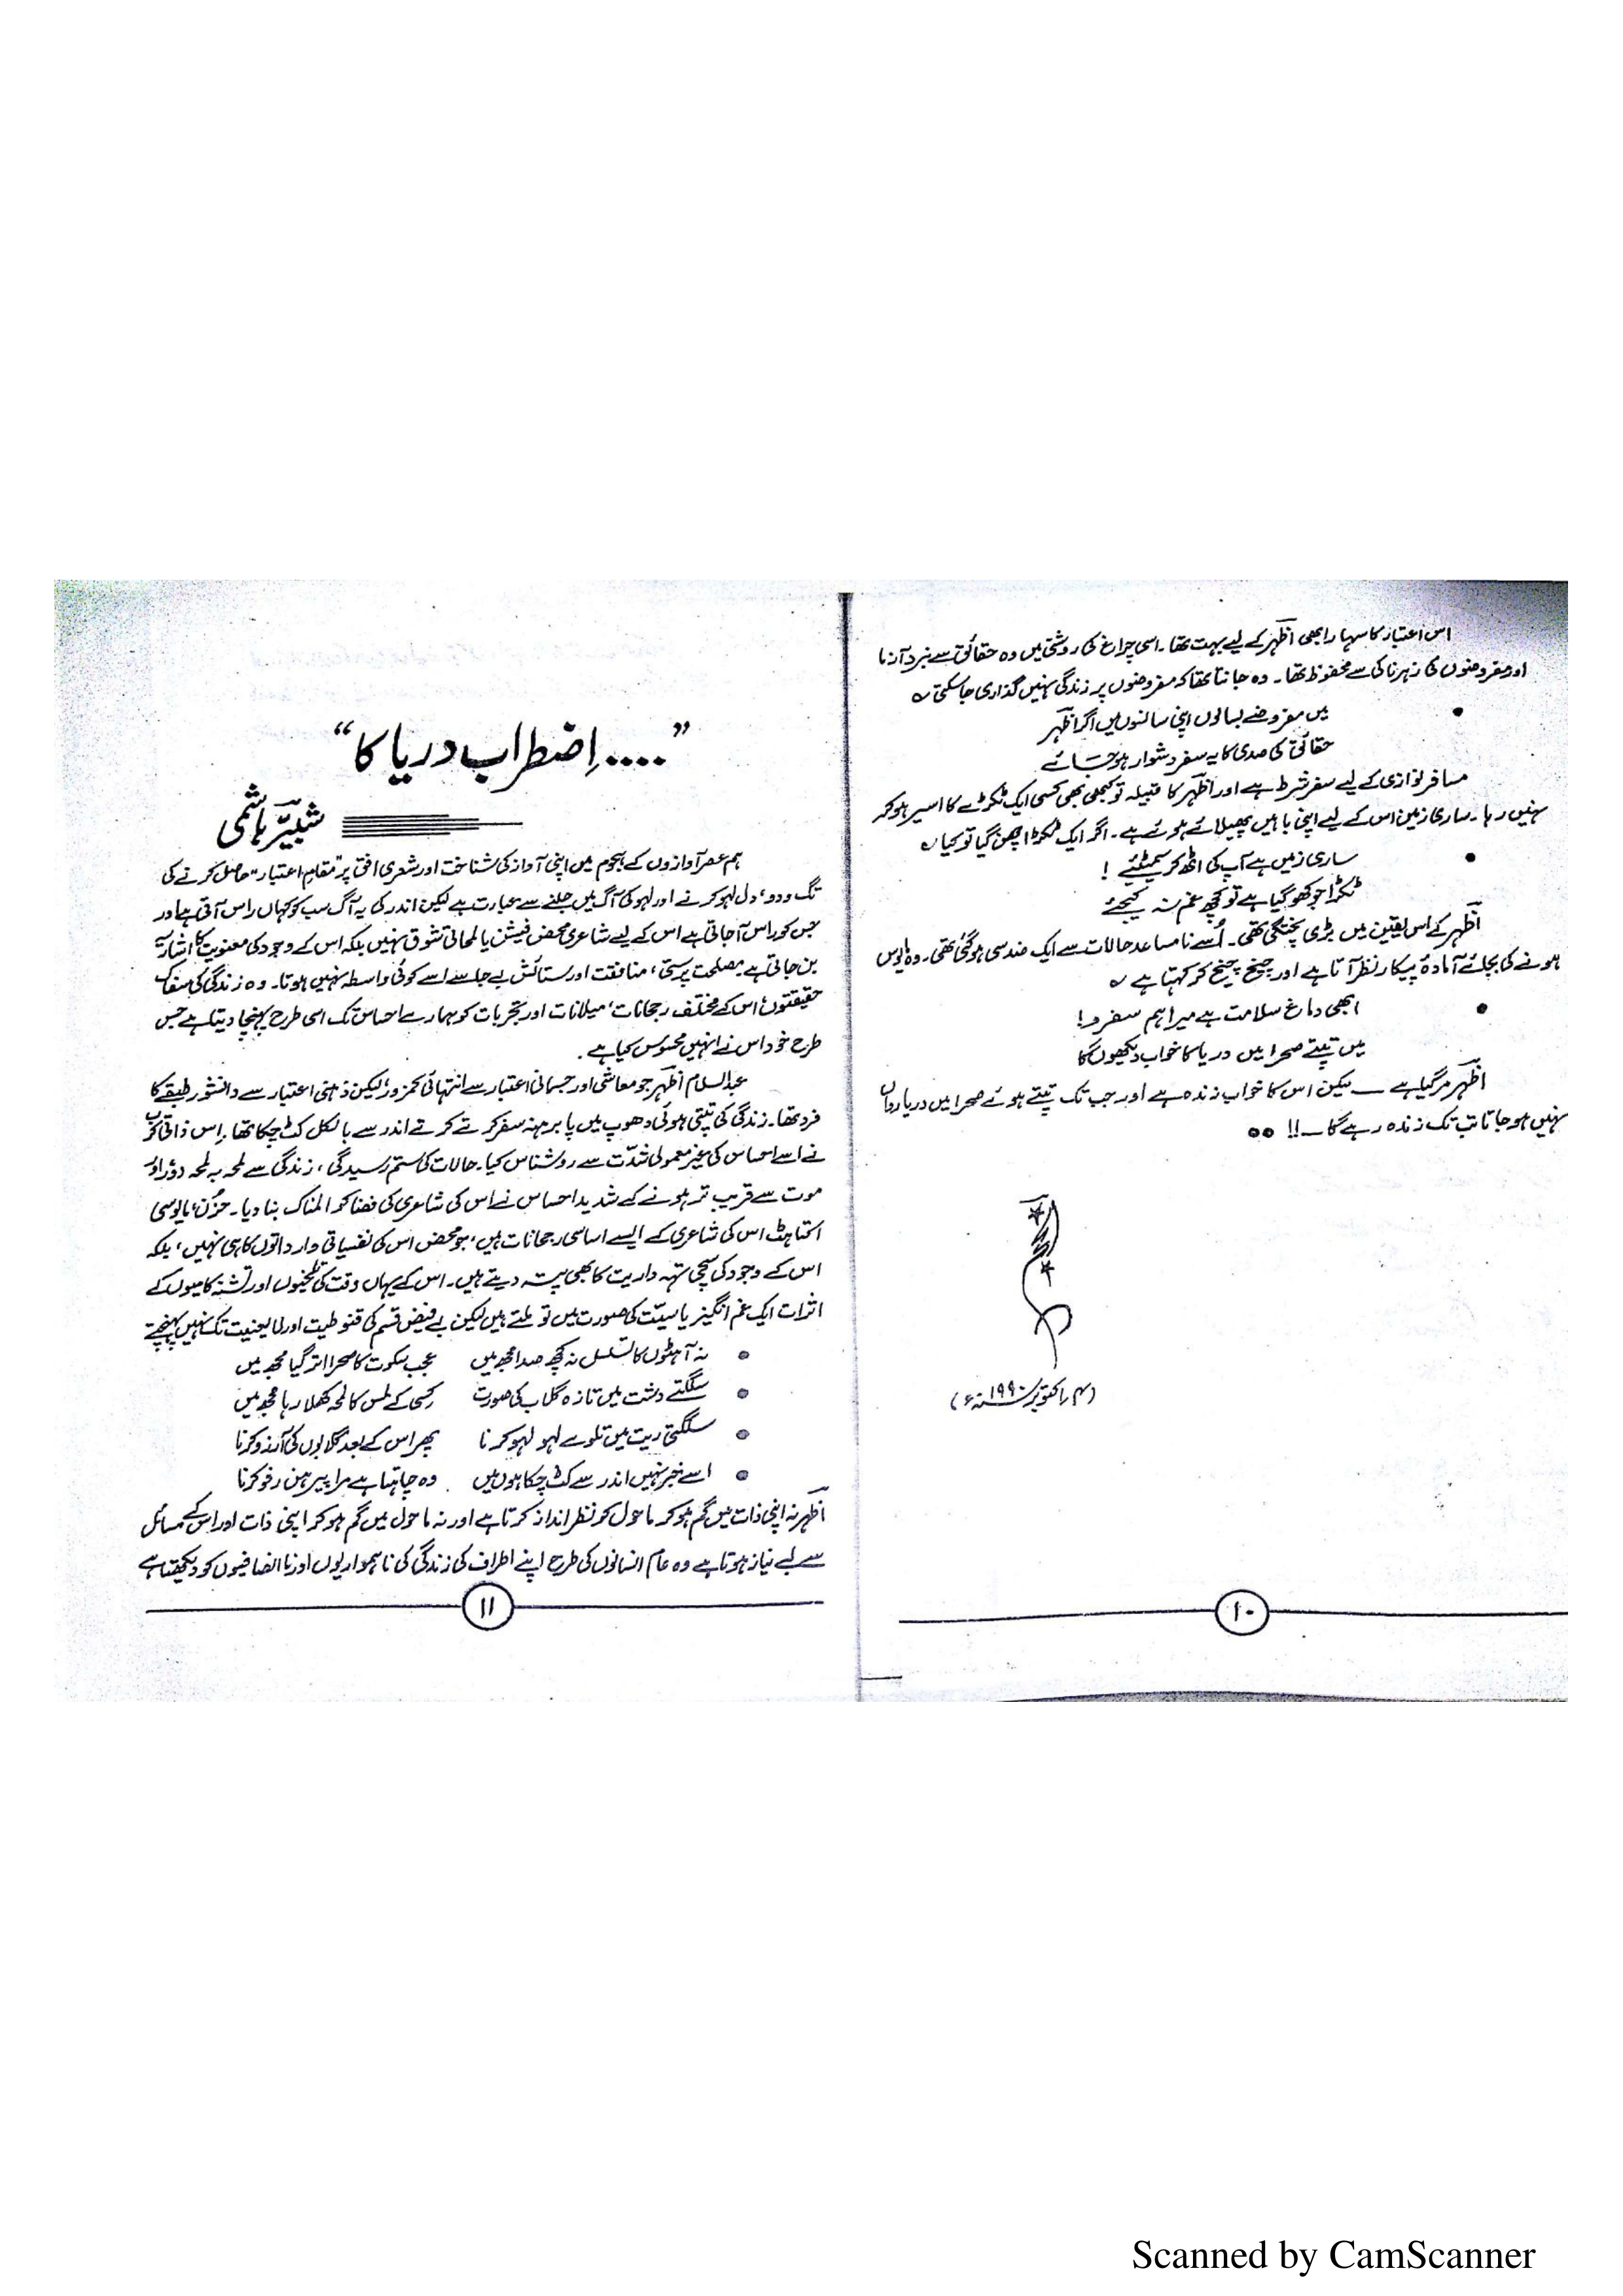 اس اعتبار کا سہارا بھی اظہر کے لیے بہت تھا۔ اسی چراغ کی روشنی میں وہ حقائق سے نبرد آزما
اور مفروضوں کی زہرناکی سے محفوظ تھا۔ وہ جانتا تھا کہ مفروضوں پر زندگی نہیں گذاری جا سکتی ؎
• میں مفروضے بسا لوں اپنی سانسوں میں اگر اظہر
حقائق کی صدی کا یہ سفر دشوار ہو جائے
مسافر نوازی کے لیے سفر شرط ہے اور اظہر کا قبیلہ تو کبھی بھی کسی ایک ٹکڑے کا اسیر ہو کر
نہیں رہا۔ ساری زمین اس کے لیے اپنی باہیں پھیلائے ہوئے ہے۔ اگر ایک ٹکڑا چھن گیا تو کیا ؎
• ساری زمیں ہے آپ کی اٹھ کر سمیٹئے !
ٹکڑا جو کھو گیا ہے تو کچھ غم نہ کیجئے
اظہر کے اس یقین میں بڑی پختگی تھی۔ اُسے نامساعد حالات سے ایک ضد سی ہو گئی تھی۔ وہ مایوس
ہونے کی بجائے آمادۂ پیکار نظر آتا ہے اور چیخ چیخ کر کہتا ہے ؎
• ابھی دماغ سلامت ہے میرا ہم سفرو!
میں تپتے صحرا میں دریا کا خواب دیکھوں گا
اظہر مر گیا ہے ــ لیکن اس کا خواب زندہ ہے اور جب تک تپتے ہوئے صحرا میں دریا رواں
نہیں ہو جاتا تب تک زندہ رہے گا ــ!! ●●
(۴؍ اکتوبر ۱۹۹۰ء)
۱۰
”....اِضطراب دریا کا“
شبیر ہاشمی
ہم عصر آوازوں کے ہجوم میں اپنی آواز کی شناخت اور شعری افق پر ”مقامِ اعتبار“ حاصل کرنے کی
تگ و دو، دل لہو کرنے اور لہو کی آگ میں جلنے سے عبارت ہے لیکن اندر کی یہ آگ سب کو کہاں راس آتی ہے اور
جس کو راس آ جاتی ہے اس کے لیے شاعری محض فیشن یا لمحاتی شوق نہیں بلکہ اس کے وجود کی معنویت کا اشاریہ
بن جاتی ہے مصلحت پرستی، منافقت اور ستائش بے جا سے اسے کوئی واسطہ نہیں ہوتا۔ وہ زندگی کی سفاک
حقیقتوں، اس کے مختلف رجحانات، میلانات اور تجربات کو ہمارے احساس تک اسی طرح پہنچا دیتا ہے جس
طرح خود اس نے انہیں محسوس کیا ہے۔
عبدالسلام اظہر جو معاشی اور جسمانی اعتبار سے انتہائی کمزور، لیکن ذہنی اعتبار سے دانشور طبقے کا
فرد تھا۔ زندگی کی تپتی ہوئی دھوپ میں پا برہنہ سفر کرتے کرتے اندر سے بالکل کٹ چکا تھا۔ اِس ذاتی کرب
نے اسے احساس کی غیر معمولی شدّت سے روشناس کیا۔ حالات کی ستم رسیدگی، زندگی سے لمحہ بہ لمحہ دور اور
موت سے قریب تر ہونے کے شدید احساس نے اس کی شاعری کی فضا کو المناک بنا دیا۔ حزن، مایوسی
اکتاہٹ اس کی شاعری کے ایسے اساسی رجحانات ہیں، جو محض اس کی نفسیاتی وارداتوں کا ہی نہیں، بلکہ
اس کے وجود کی سچی تہہ داریت کا بھی پتہ دیتے ہیں۔ اس کے یہاں وقت کی تلخیوں اور تشنہ کامیوں کے
اثرات ایک غم انگیز یاسیت کی صورت میں تو ملتے ہیں لیکن بے فیض قسم کی قنوطیت اور لایعنیت تک نہیں پہنچتے
• نہ آہٹوں کا تسلسل نہ کچھ صدا مجھ میں عجب سکوت کا صحرا اتر گیا مجھ میں
• سلگتے دشت میں تازہ گلاب کی صورت کسی کے لمس کا لمحہ کھلا رہا مجھ میں
• سلگتی ریت میں تلوے لہو لہو کرنا پھر اس کے بعد گلابوں کی آرزو کرنا
• اسے خبر نہیں اندر سے کٹ چکا ہوں میں وہ چاہتا ہے مرا پیرہن رفو کرنا
اظہر نہ اپنی ذات میں گم ہو کر ماحول کو نظر انداز کرتا ہے اور نہ ماحول میں گم ہو کر اپنی ذات اور اس کے مسائل
سے بے نیاز ہوتا ہے وہ عام انسانوں کی طرح اپنے اطراف کی زندگی کی ناہمواریوں اور ناانصافیوں کو دیکھتا ہے
۱۱
Scanned by CamScanner